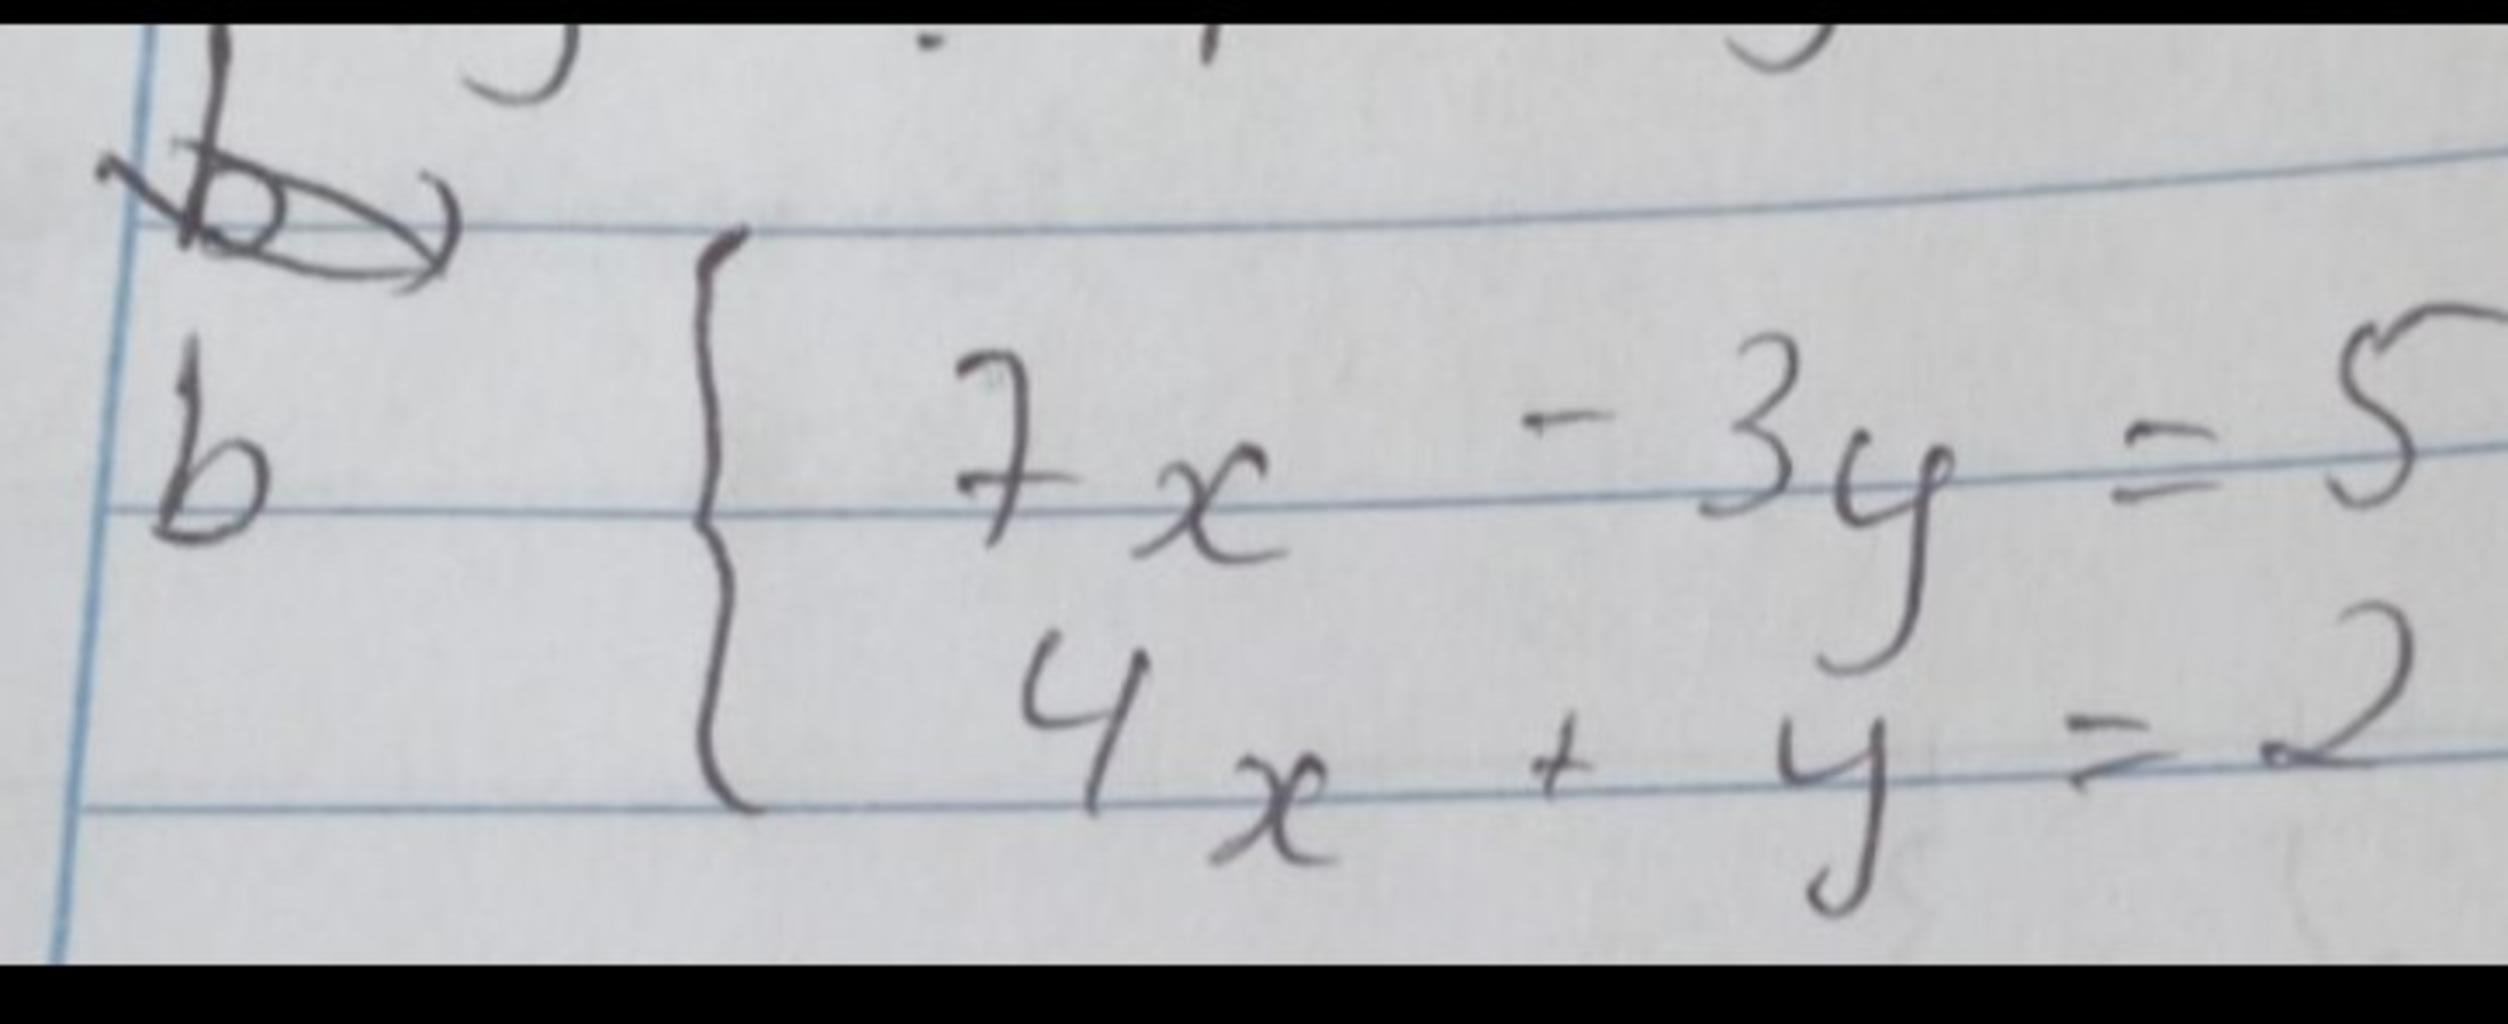 b
7x - 3y = 5
4x + y = 2